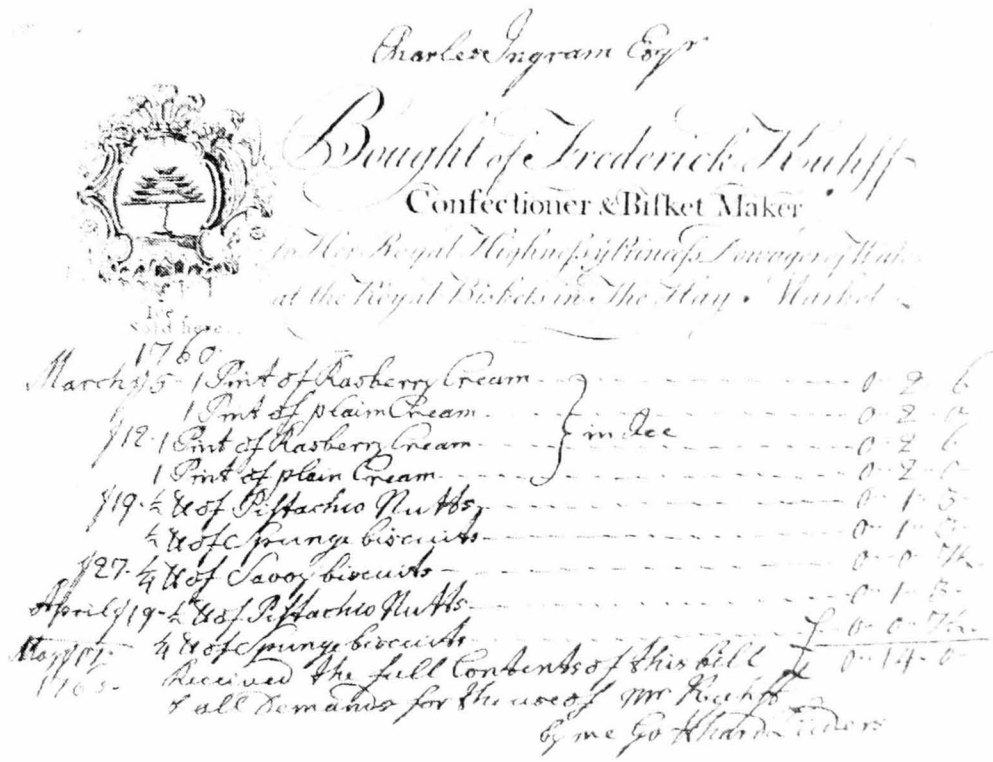 Charles Ingram Esqr
Bought of Frederick Kuhff
Confectioner & Biſket Maker
to Her Royal Highneſs ye Princeſs Dowager of Wales
at the Royal Biskets in The Hay Market
Ice
Sold here
1760
March ye 5 - 1 Pint of Rasberry Cream - 0 - 2 - 6
1 Pint of plain Cream - 0 - 2 - 0
ye 12 - 1 Pint of Rasberry Cream - in Ice - 0 - 2 - 6
1 Pint of plain Cream - 0 - 2 - 0
ye 19 - ½ ℔ of Pistachio Nutts - 0 - 1 - 3
½ ℔ of Spunge biscuits - 0 - 1 - 3
ye 27 - ¼ ℔ of Savoy biscuits - 0 - 0 - 7½
April ye 19 - ½ ℔ of Pistachio Nutts - 0 - 1 - 3
¼ ℔ of Spunge biscuits - 0 - 0 - 7½
May ye £ 0 - 14 - 0
Received the full Contents of this bill
& all Demands for the use of Mr Kuhff
by me